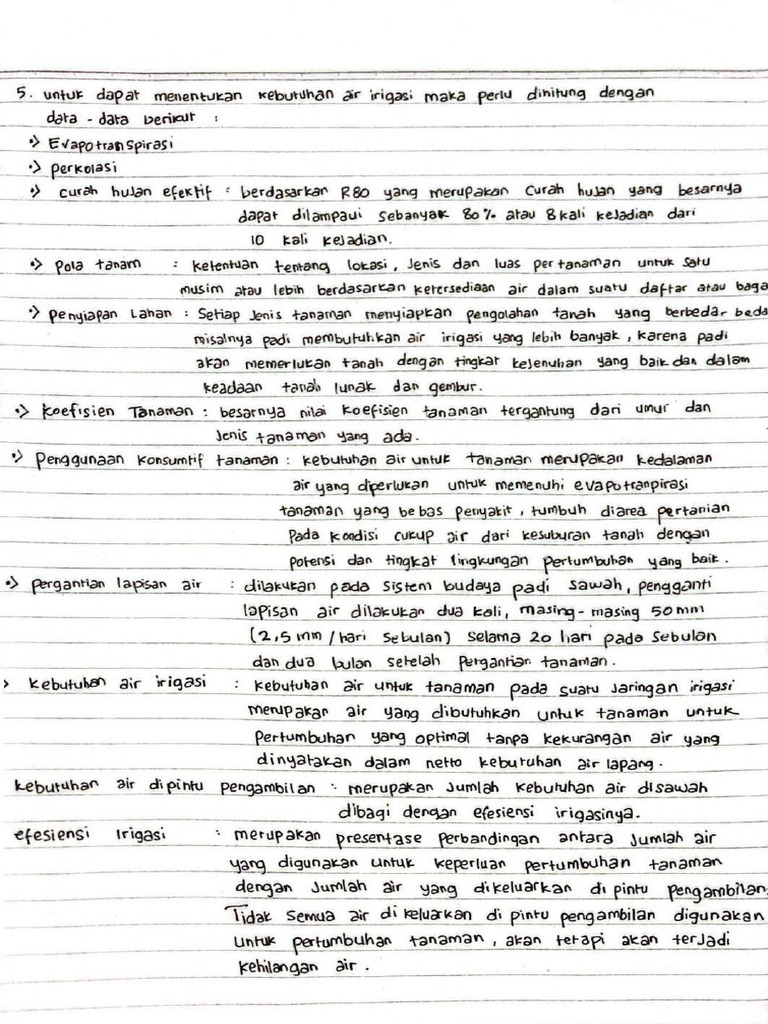 5. untuk dapat menentukan kebutuhan air irigasi maka perlu dihitung dengan
data - data berikut :
•> Evapotranspirasi
•> perkolasi
•> curah hujan efektif : berdasarkan R80 yang merupakan curah hujan yang besarnya
dapat dilampaui sebanyak 80% atau 8 kali kejadian dari
10 kali kejadian.
•> pola tanam : ketentuan tentang lokasi, jenis dan luas pertanaman untuk satu
musim atau lebih berdasarkan ketersediaan air dalam suatu daftar atau baga
•> penyiapan Lahan : Setiap jenis tanaman menyiapkan pengolahan tanah yang berbeda- beda
misalnya padi membutuhkan air irigasi yang lebih banyak, karena padi
akan memerlukan tanah dengan tingkat kejenuhan yang baik dan dalam
keadaan tanah lunak dan gembur.
•> koefisien Tanaman : besarnya nilai koefisien tanaman tergantung dari umur dan
jenis tanaman yang ada.
•> penggunaan konsumtif tanaman : kebutuhan air untuk tanaman merupakan kedalaman
air yang diperlukan untuk memenuhi evapotranpirasi
tanaman yang bebas penyakit, tumbuh diarea pertanian
pada kondisi cukup air dari kesuburan tanah dengan
potensi dan tingkat lingkungan pertumbuhan yang baik.
•> pergantian lapisan air : dilakukan pada sistem budaya padi sawah, pengganti
lapisan air dilakukan dua kali, masing-masing 50mm
(2,5 mm/hari sebulan) selama 20 hari pada sebulan
dan dua bulan setelah pergantian tanaman.
> kebutuhan air irigasi : kebutuhan air untuk tanaman pada suatu jaringan irigasi
merupakan air yang dibutuhkan untuk tanaman untuk
pertumbuhan yang optimal tanpa kekurangan air yang
dinyatakan dalam netto kebutuhan air lapang.
kebutuhan air dipintu pengambilan : merupakan jumlah kebutuhan air disawah
dibagi dengan efesiensi irigasinya.
efesiensi Irigasi : merupakan presentase perbandingan antara jumlah air
yang digunakan untuk keperluan pertumbuhan tanaman
dengan jumlah air yang dikeluarkan di pintu pengambilan.
Tidak semua air di keluarkan di pintu pengambilan digunakan
untuk pertumbuhan tanaman, akan tetapi akan terjadi
kehilangan air.